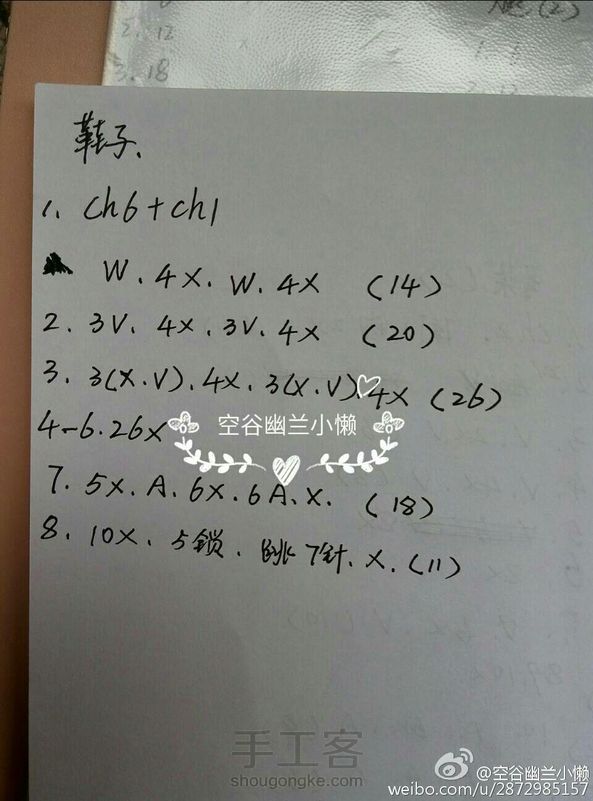 2. 12
3. 18
鞋子、
1. ch6+ch1
W. 4X. W. 4X (14)
2. 3V. 4X. 3V. 4X (20)
3. 3(X.V). 4X. 3(X.V) 4X (26)
4-6. 26X
空谷幽兰小懒
7. 5X. A. 6X. 6A. X. (18)
8. 10X. 5锁. 跳7针. X. (11)
手工客
shougongke.com
@空谷幽兰小懒
weibo.com/u/2872985157